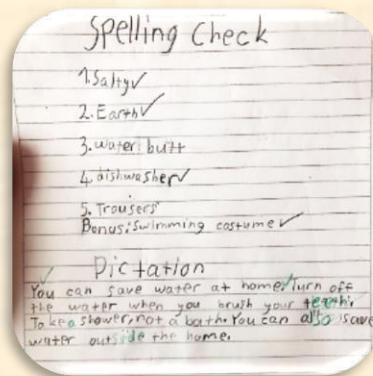 Spelling Check
1. Salty✓
2. Earth✓
3. water butt
4. dishwasher✓
5. Trousers
Bonus: Swimming costume✓
Dictation
You can save water at home. Turn off
the water when you brush your teeth.
Take a shower, not a bath. You can also save
water outside the home.